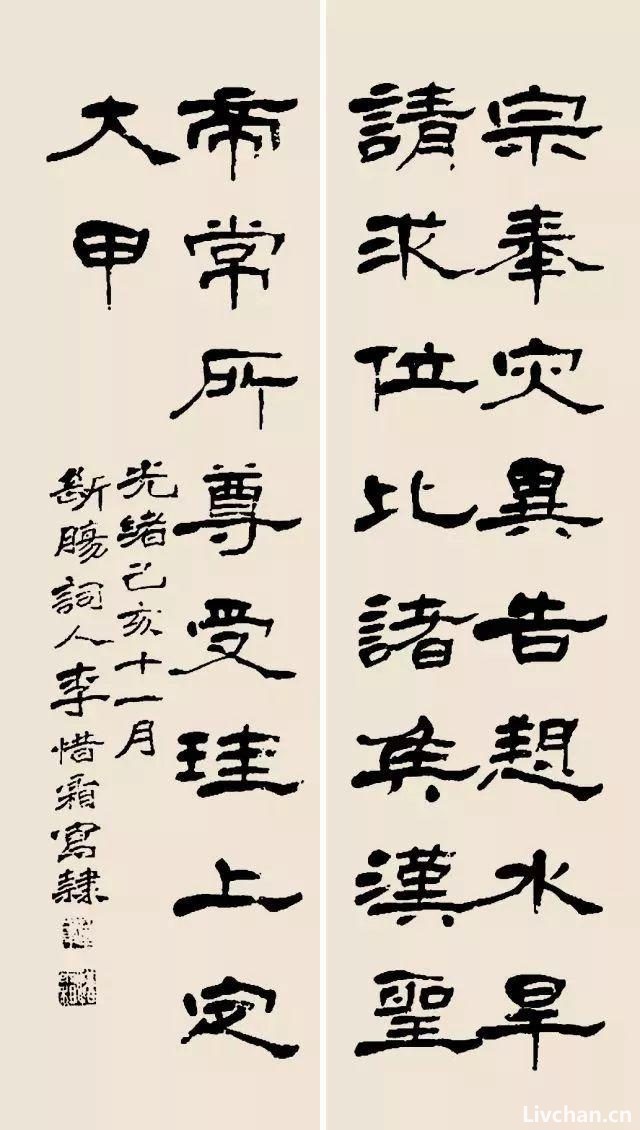 宗奉灾異告愬水旱
請求位比諸矦漢聖
帝常所尊受珪上定
大甲
光緒己亥十一月
斷腸詞人李惜霜寫隸
Livchan.cn